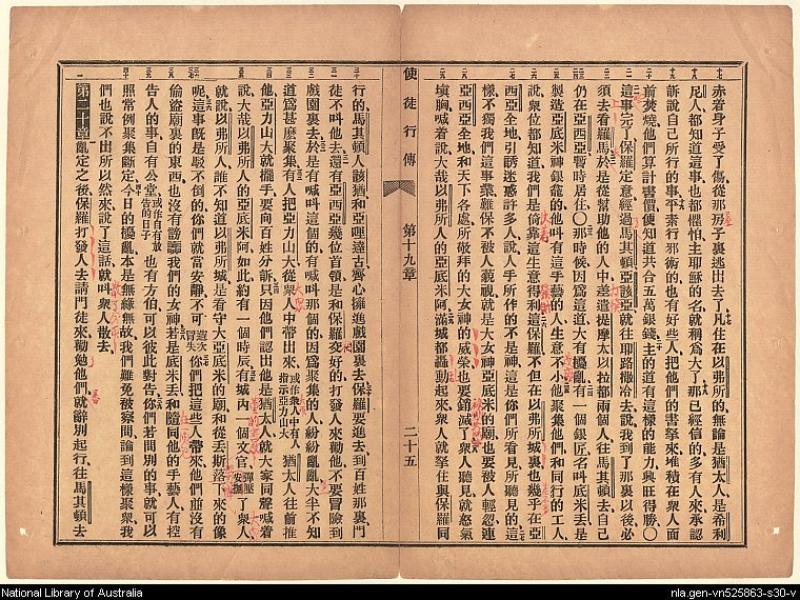 赤着身子受了傷從那房子裏逃出去了凡住在以弗所的無論是猶太人是希利
尼人都知道這事也都懼怕主耶穌的名就稱爲大了那已經信的多有人來承認
訴說自己所行的事平素行邪術的也有好些人把他們的書拏來堆積在衆人面
前焚燒他們算計書價便知道共合五萬銀錢主的道有這樣的能力興旺得勝〇
這事完了保羅定意經過馬其頓亞該亞就往耶路撒冷去說我到了那裏以後必
須去看羅馬於是從幫助他的人中差遣提摩太以拉都兩個人往馬其頓去自己
仍在亞西亞暫時居住〇那時候因爲這道大有擾亂有一個銀匠名叫底米丟是
製造亞底米神銀龕的他叫有這手藝的人生意不小他聚集他們和同行的工人
說衆位都知道我們是倚靠這生意得利這保羅不但在以弗所城裏也幾乎在亞
西亞全地引誘迷惑許多人說人手所作的不是神這是你們所看見所聽見的這
樣不獨我們這事業難保不被人藐視就是大女神亞底米的廟也要被人輕忽連
亞西亞全地和天下各處所敬拜的大女神的威榮也要銷滅了衆人聽見就怒氣
塡胸喊着說大哉以弗所人的亞底米阿滿城都轟動起來衆人就拏住與保羅同
使徒行傳 第十九章 二十五
行的馬其頓人該猶和亞哩達古齊心擁進戲園裏去保羅要進去到百姓那裏門
徒不叫他去還有亞西亞幾位首領是和保羅交好的打發人來勸他不要冒險到
戲園裏去於是有喊叫這個的有喊叫那個的因爲聚集的人紛紛亂亂大半不知
道爲甚麼聚集有人把亞力山大從衆人中帶出來或作衆人中有人指示亞力山大猶太人往前推
他亞力山大就擺手要向百姓分訴只因他們認出他是猶太人就大家同聲喊着
說大哉以弗所人的亞底米阿如此約有一個時辰有城內一個文官彈壓安撫了衆人
就說以弗所人誰不知道以弗所城是看守大亞底米的廟和從丟斯落下來的像
呢這事旣是駁不倒的你們就當安靜不可造次冒失你們把這些人帶來他們並沒有
偷盜廟裏的東西也沒有謗讟我們的女神若是底米丟和隨同他的手藝人有控
告人的事自有公堂或作自有放告的日子也有方伯可以彼此對告你們若問別的事就可以
照常例聚集斷定今日的擾亂本是無緣無故我們難免被察問論到這樣聚衆我
們也說不出所以然來說了這話就叫衆人散去
第二十章亂定之後保羅打發人去請門徒來勸勉他們就辭別起行往馬其頓去
National Library of Australia
nla.gen-vn525863-s30-v